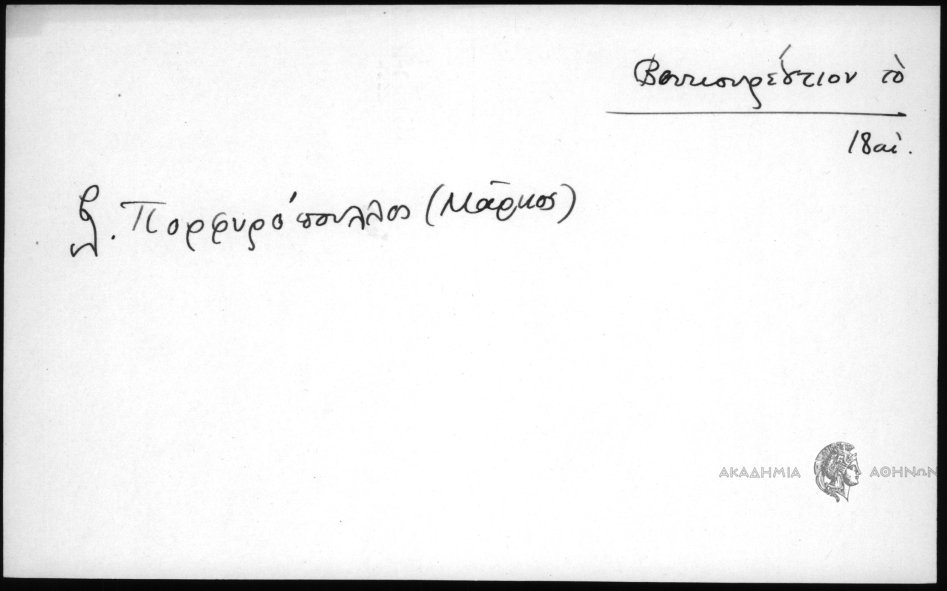 Βουκουρέστιον τὸ
18 αἰ.
Πορφυρόπουλλος (Μᾶρκος)
ΑΚΑΔΗΜΙΑ ΑΘΗΝΩΝ